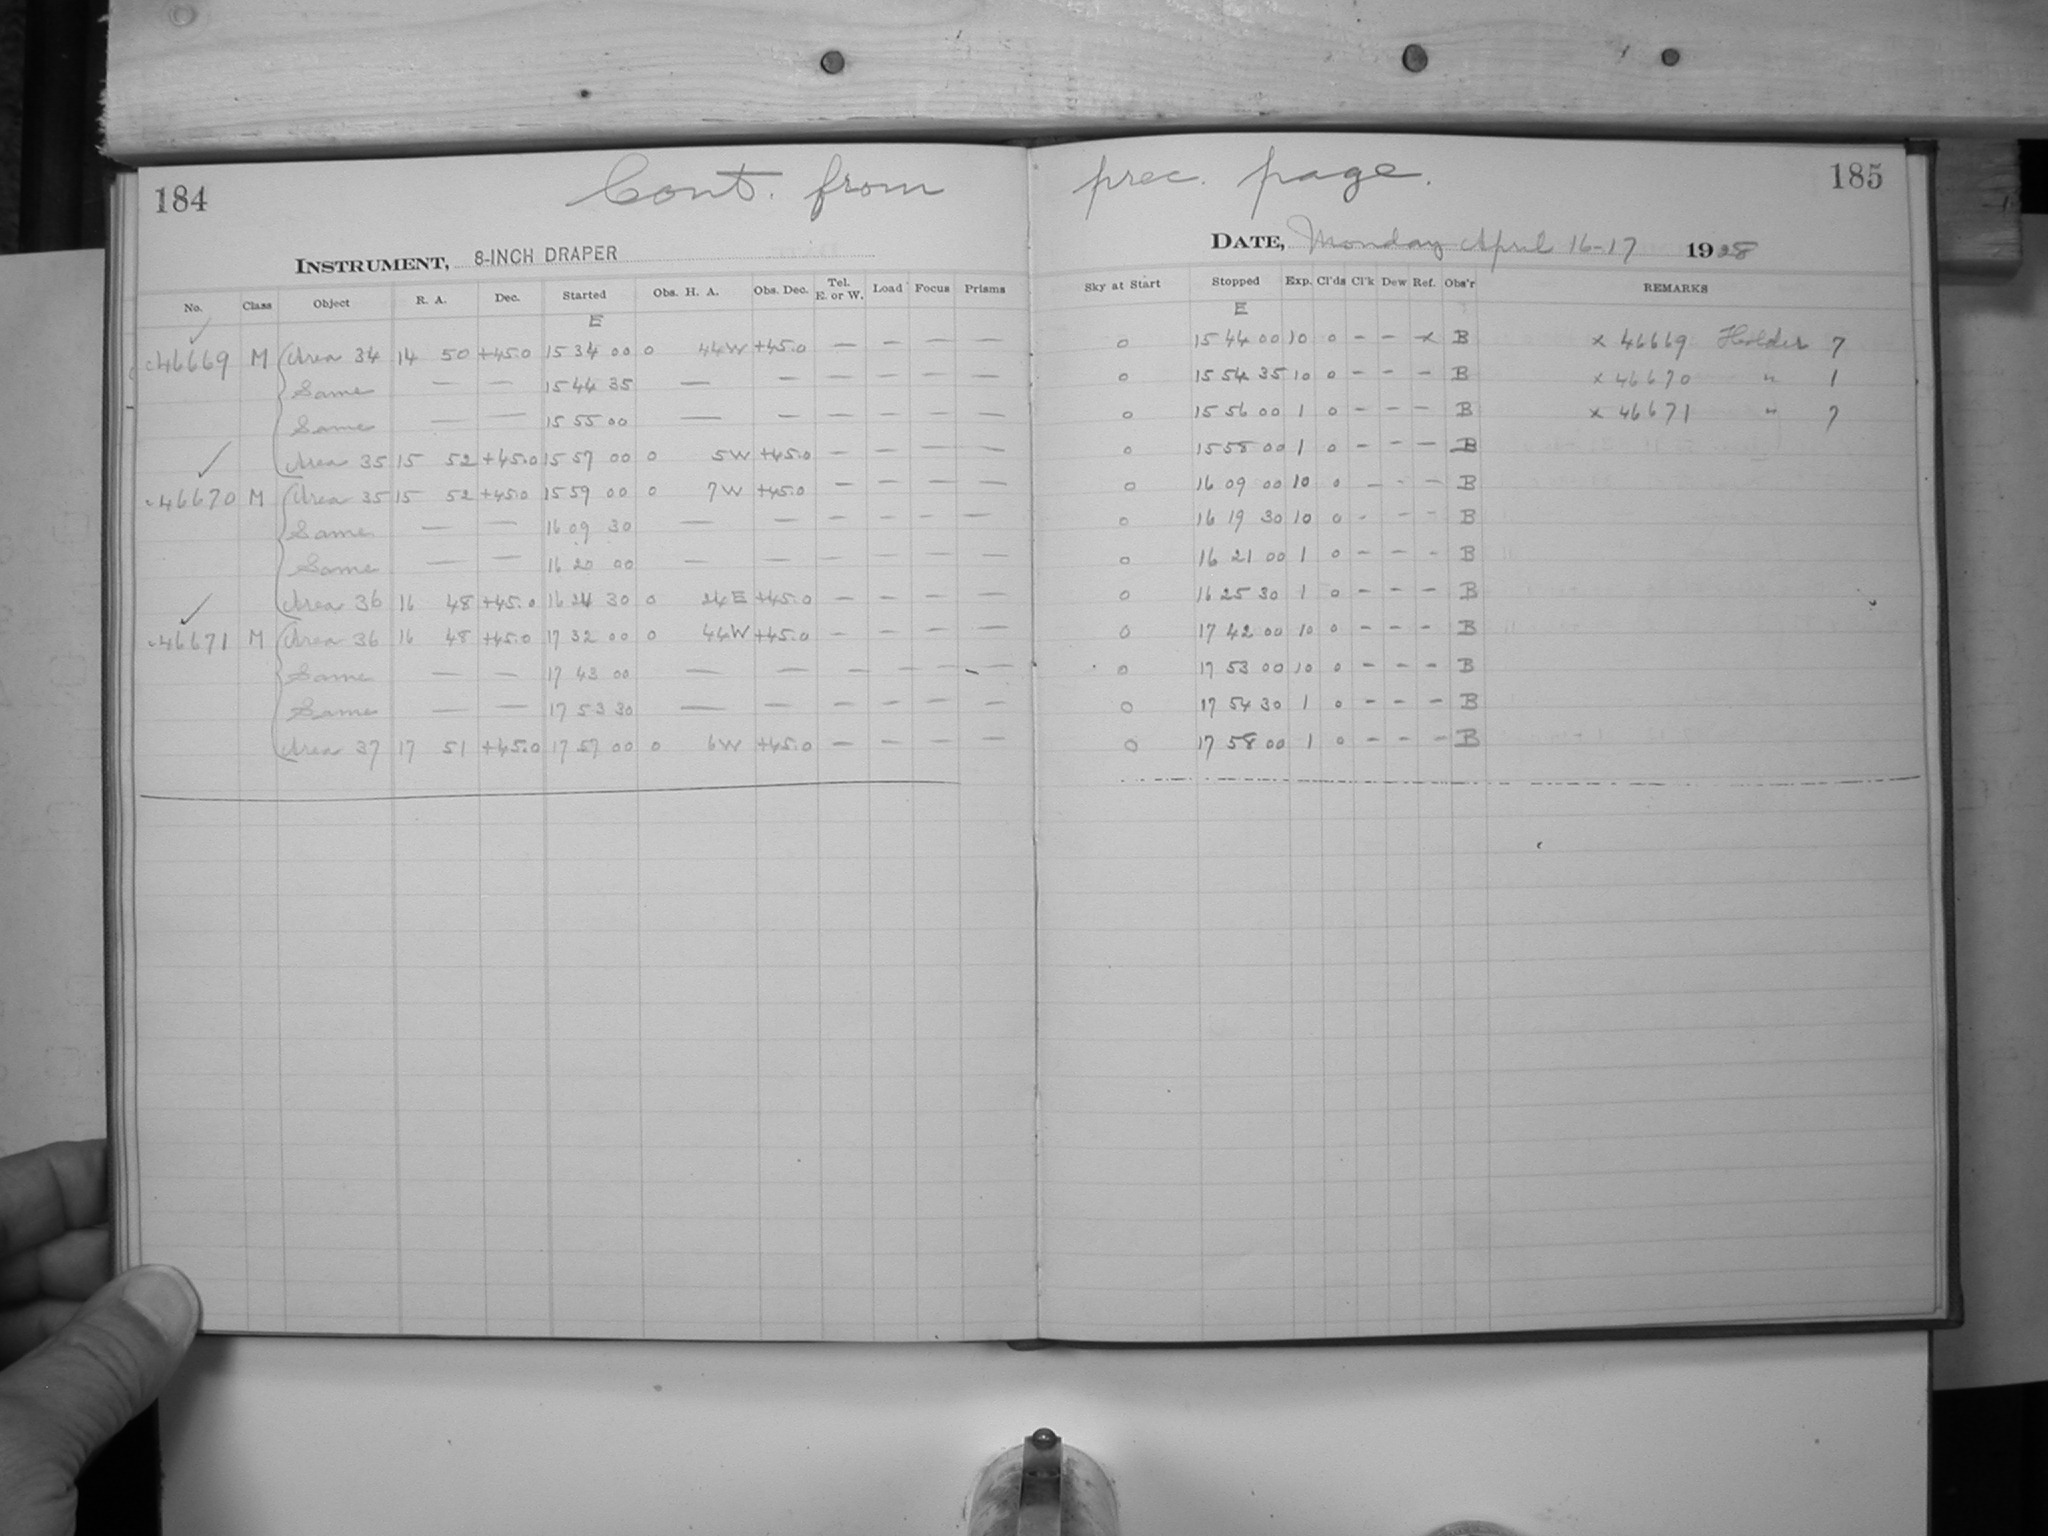 184 Cont. from prec. page. 185
INSTRUMENT, 8-INCH DRAPER DATE, Monday April 16-17 1928
No. Class Object R. A. Dec. Started Obs. H. A. Obs. Dec. Tel. E. or W. Load Focus Prisms Sky at Start Stopped Exp. Cl'ds Cl'k Dew Ref. Obs'r REMARKS
E E
46669 M Area 34 14 50 +45.0 15 34 00 0 44W +45.0 — — — — 0 15 44 00 10 0 - - x B x 46669 Holder 7
Same — — 15 44 35 — — — — — — 0 15 54 35 10 0 - - - B x 46670 " 1
Same — — 15 55 00 — — — — — — 0 15 56 00 1 0 - - - B x 46671 " 7
Area 35 15 52 +45.0 15 57 00 0 5W +45.0 — — — — 0 15 58 00 1 0 - - - B
46670 M Area 35 15 52 +45.0 15 59 00 0 7W +45.0 — — — — 0 16 09 00 10 0 - - - B
Same — — 16 09 30 — — — — — — 0 16 19 30 10 0 - - - B
Same — — 16 20 00 — — — — — — 0 16 21 00 1 0 - - - B
Area 36 16 48 +45.0 16 24 30 0 24E +45.0 — — — — 0 16 25 30 1 0 - - - B
46671 M Area 36 16 48 +45.0 17 32 00 0 44W +45.0 — — — — 0 17 42 00 10 0 - - - B
Same — — 17 43 00 — — — — — — 0 17 53 00 10 0 - - - B
Same — — 17 53 30 — — — — — — 0 17 54 30 1 0 - - - B
Area 37 17 51 +45.0 17 57 00 0 6W +45.0 — — — — 0 17 58 00 1 0 - - - B